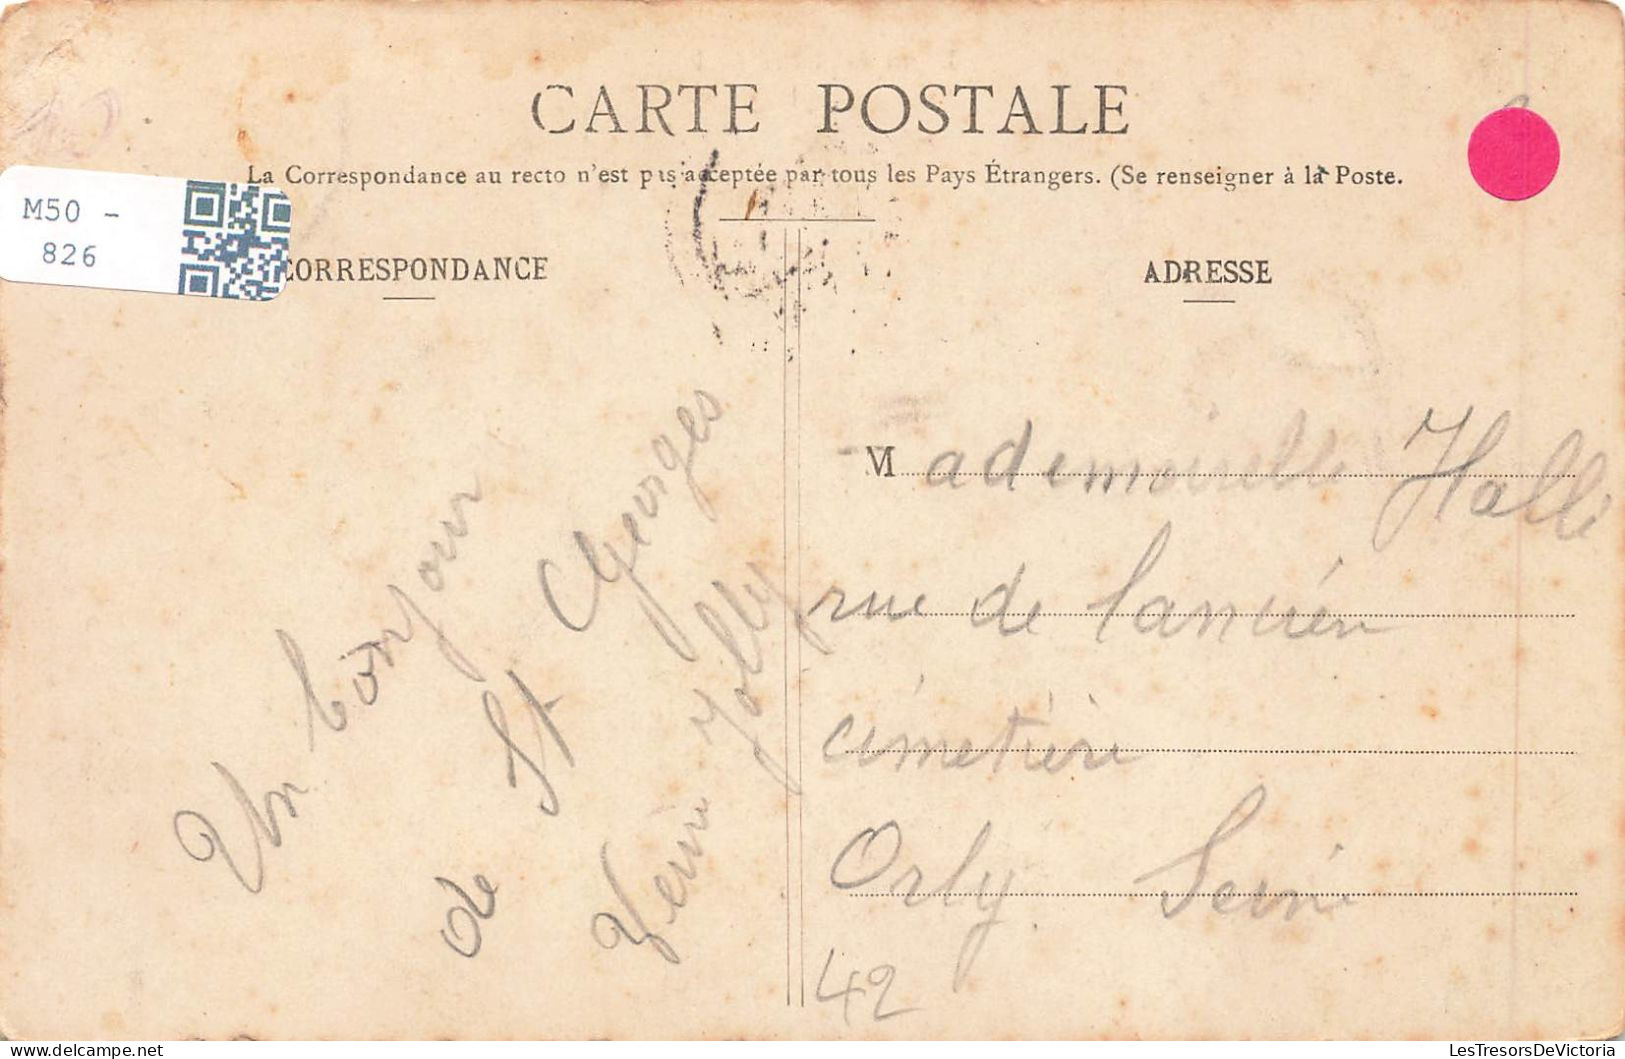 CARTE POSTALE
La Correspondance au recto n'est pas acceptée par tous les Pays Étrangers. (Se renseigner à la Poste.
M50 -
826
CORRESPONDANCE
Un bonjour
de St Georges
Jolly
ADRESSE
Mademoiselle Halli
rue de l'ancien
cimetière
Orly Seine
42
LesTresorsDeVictoria
© delcampe.net